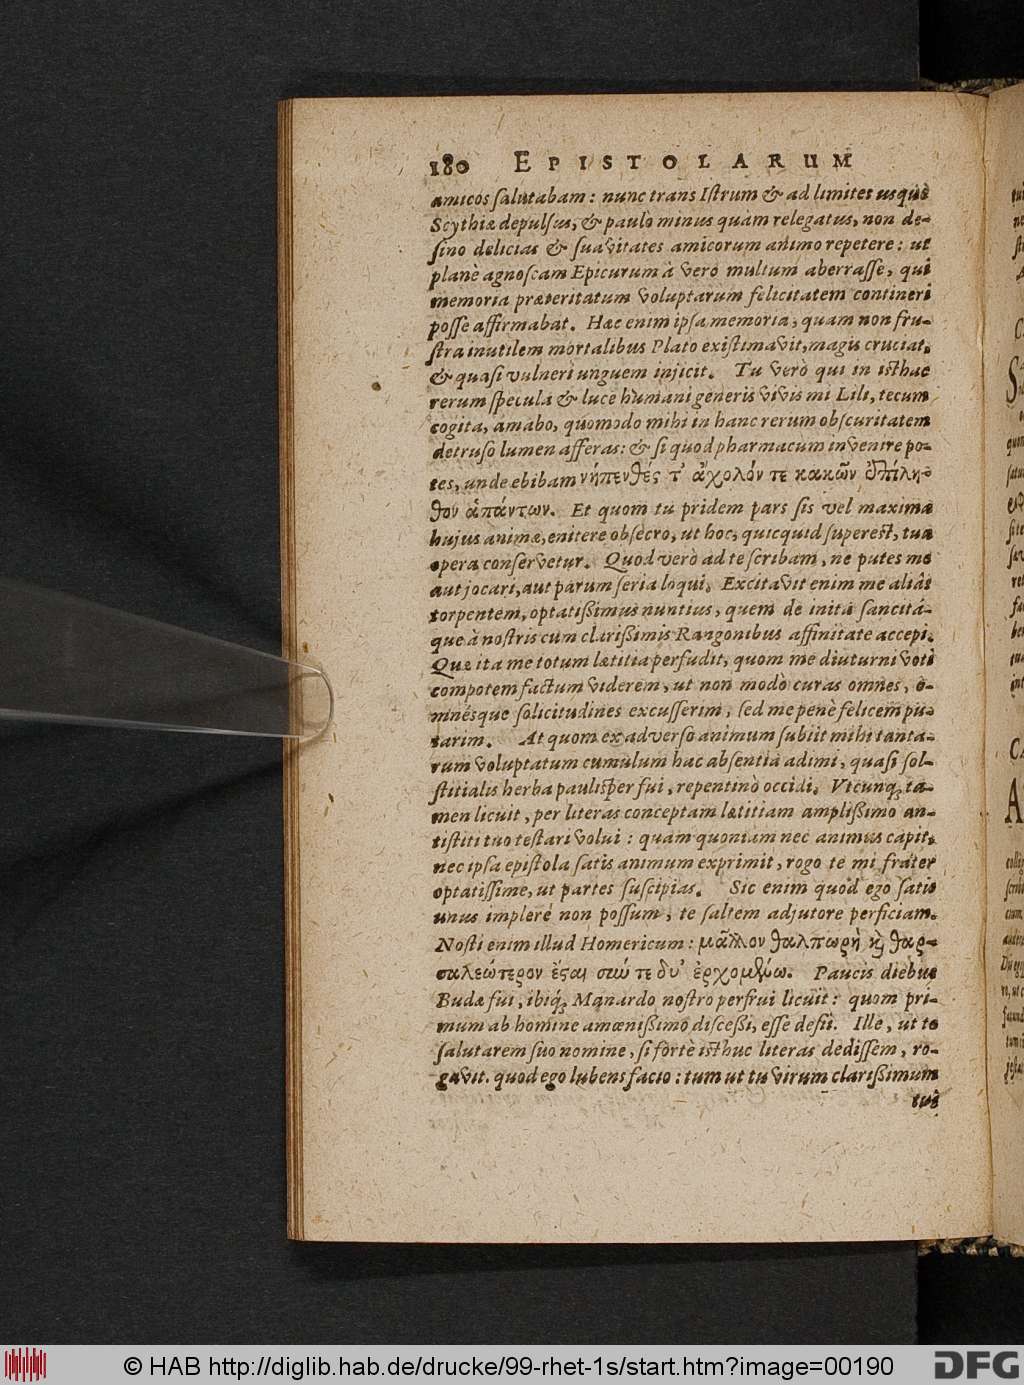 180 EPISTOLARUM
amicos salutabam: nunc trans Istrum & ad limites usque
Scythiæ depulsus, & paulò minus quàm relegatus, non de-
sino delicias & suavitates amicorum animo repetere: ut
planè agnoscam Epicurum à vero multum aberrasse, qui
memoria præteritatum voluptarum felicitatem contineri
posse affirmabat. Hæc enim ipsa memoria, quam non fru-
stra inutilem mortalibus Plato existimavit, magis cruciat,
& quasi vulneri unguem injicit. Tu verò qui in isthac
rerum specula & luce humani generis vivis mi Lili, tecum
cogita, amabo, quomodo mihi in hanc rerum obscuritatem
detruso lumen afferas: & si quod pharmacum invenire po-
tes, unde ebibam νήπενθές τ' ἄχολόν τε κακῶν ἐπίλη-
θον ἁπάντων. Et quom tu pridem pars sis vel maxima
hujus animæ, enitere obsecro, ut hoc, quicquid superest, tua
opera conservetur. Quod verò ad te scribam, ne putes me
aut jocari, aut parum seria loqui. Excitavit enim me aliâs
torpentem, optatißimus nuntius, quem de inita sancitá-
que à nostris cum clarißimis Rangonibus affinitate accepi.
Quæ ita me totum lætitia perfudit, quom me diuturni voti
compotem factum viderem, ut non modò curas omnes, o-
mnésque solicitudines excusserim, sed me penè felicem pu-
tarim. At quom ex adverso animum subiit mihi tanta-
rum voluptatum cumulum hac absentia adimi, quasi sol-
stitialis herba paulisper fui, repentinò occidi. Utcunq; ta-
men licuit, per literas conceptam lætitiam amplißimo an-
tistiti tuo testari volui: quam quoniam nec animus capit,
nec ipsa epistola satis animum exprimit, rogo te mi frater
optatissime, ut partes suscipias. Sic enim quod ego satis
unus implere non possum, te saltem adjutore perficiam.
Nosti enim illud Homericum: μᾶλλον θαλπωρὴ καὶ θαρ-
σαλεώτερον ἔσαι σωώ τε δύ' ἐρχομένω. Paucis diebus
Budæ fui, ibiq; Manardo nostro perfrui licuit: quom pri-
mum ab homine amœnißimo discessi, esse desii. Ille, ut te
salutarem suo nomine, si fortè isthuc literas dedissem, ro-
gavit. quod ego lubens facio: tum ut tu virum clarißimum
© HAB http://diglib.hab.de/drucke/99-rhet-1s/start.htm?image=00190
DFG